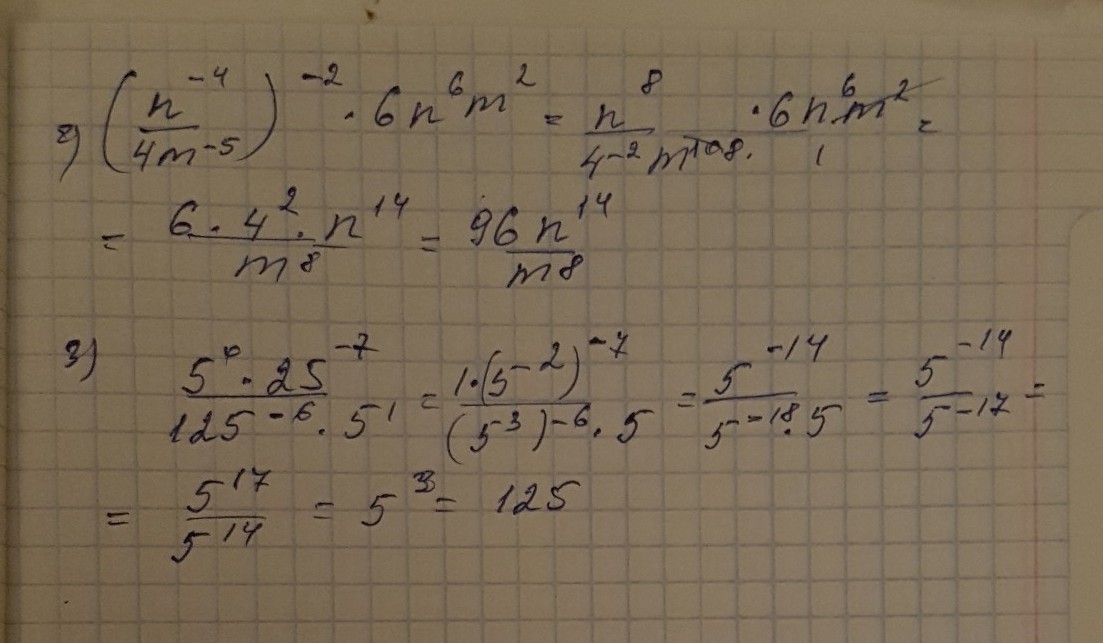 2) (n^-4 / 4m^-5)^-2 · 6n^6 m^2 = n^8 / 4^-2 m^10 8. · 6n^6 m^2 / 1 =
= 6 · 4^2 · n^14 / m^8 = 96 n^14 / m^8
3) 5^0 · 25^-7 / 125^-6 · 5^1 = 1 · (5^-2)^-7 / (5^3)^-6 · 5 = 5^-14 / 5^-18 · 5 = 5^-14 / 5^-17 =
= 5^17 / 5^14 = 5^3 = 125